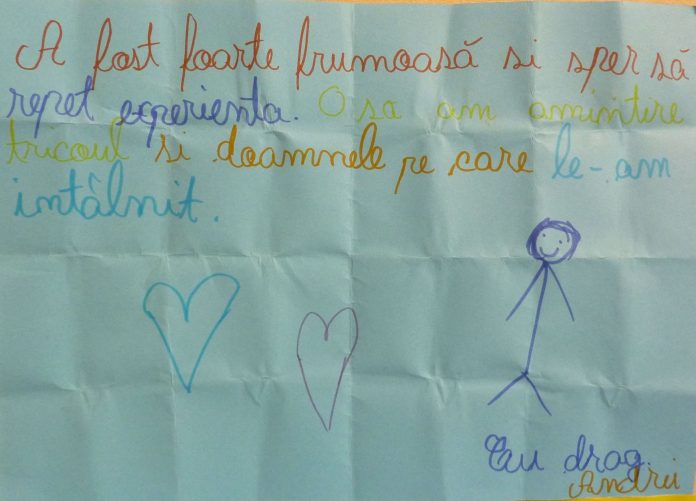 A fost foarte frumoasă si sper să
repet experienta. O sa am amintire
tricoul si doamnele pe care le-am
întâlnit.
Cu drag.
Andrei